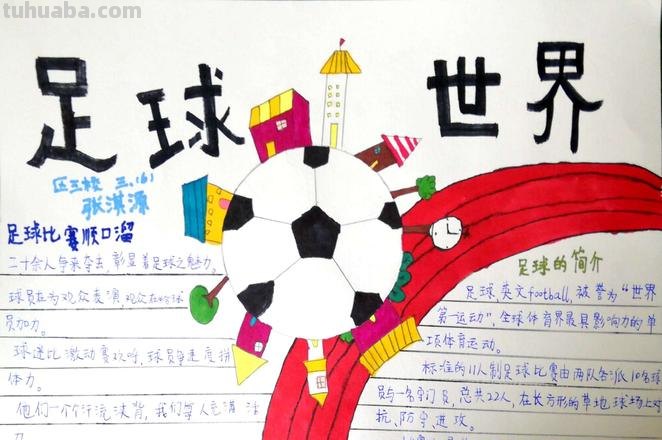 tuhuaba.com
足球世界
区三校 三.(6)
张淇源
足球比赛顺口溜
二十余人争来夺去,彰显着足球之魅力。
球员在为观众表演,观众在给球
员加力。
球迷比激动赛欢呼,球员争速度拼
体力。
他们一个个汗流浃背,我们等人充满
力
足球的简介
足球,英文football,被誉为“世界
第一运动”,全球体育界最具影响力的单
项体育运动。
标准的11人制足球比赛由两队各派10名球
员与一名守门员,总共22人,在长方形的草地球场上对
抗、防守、进攻。